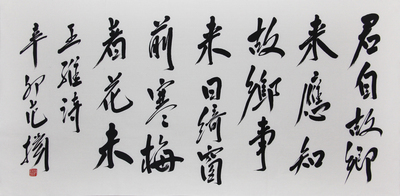 君自故鄉
来應知
故鄉事
来日綺窗
前寒梅
着花未
王維詩
辛卯范